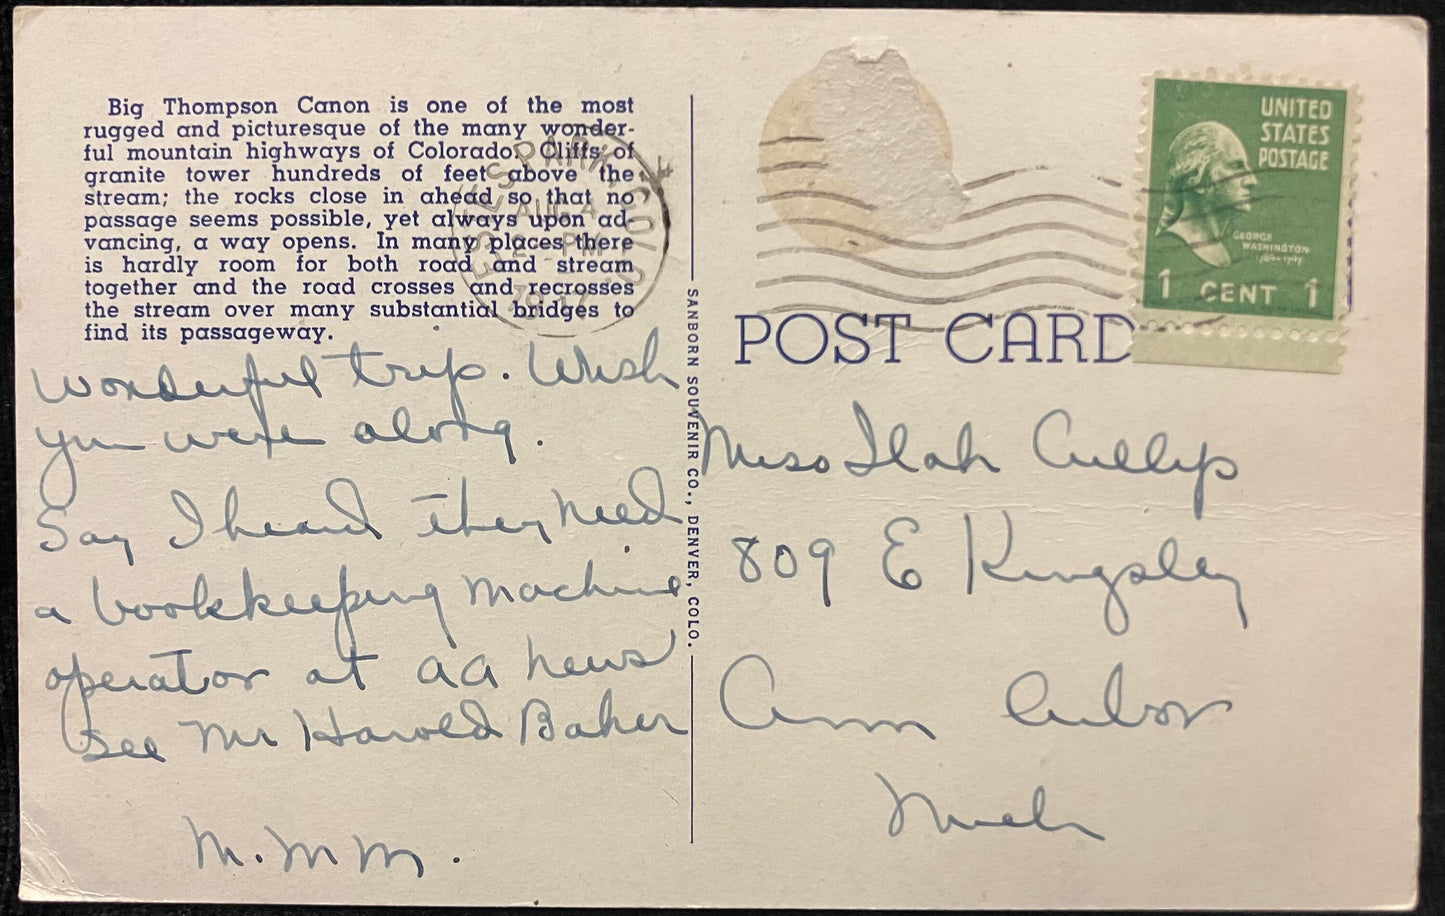 Big Thompson Canon is one of the most
rugged and picturesque of the many wonder-
ful mountain highways of Colorado. Cliffs of
granite tower hundreds of feet above the
stream; the rocks close in ahead so that no
passage seems possible, yet always upon ad-
vancing, a way opens. In many places there
is hardly room for both road and stream
together and the road crosses and recrosses
the stream over many substantial bridges to
find its passageway.
ESTES PARK, COLO.
AUG 4
12 - PM
Wonderful trip. Wish
you were along.
Say I heard they need
a bookkeeping machine
operator at AA News
See Mr Harold Baker
M. M M.
SANBORN SOUVENIR CO., DENVER, COLO.
UNITED
STATES
POSTAGE
GEORGE
WASHINGTON
1789-1797
1 CENT 1
POST CARD
Miss Ilah Cullip
809 E Kingsley
Ann Arbor
Mich